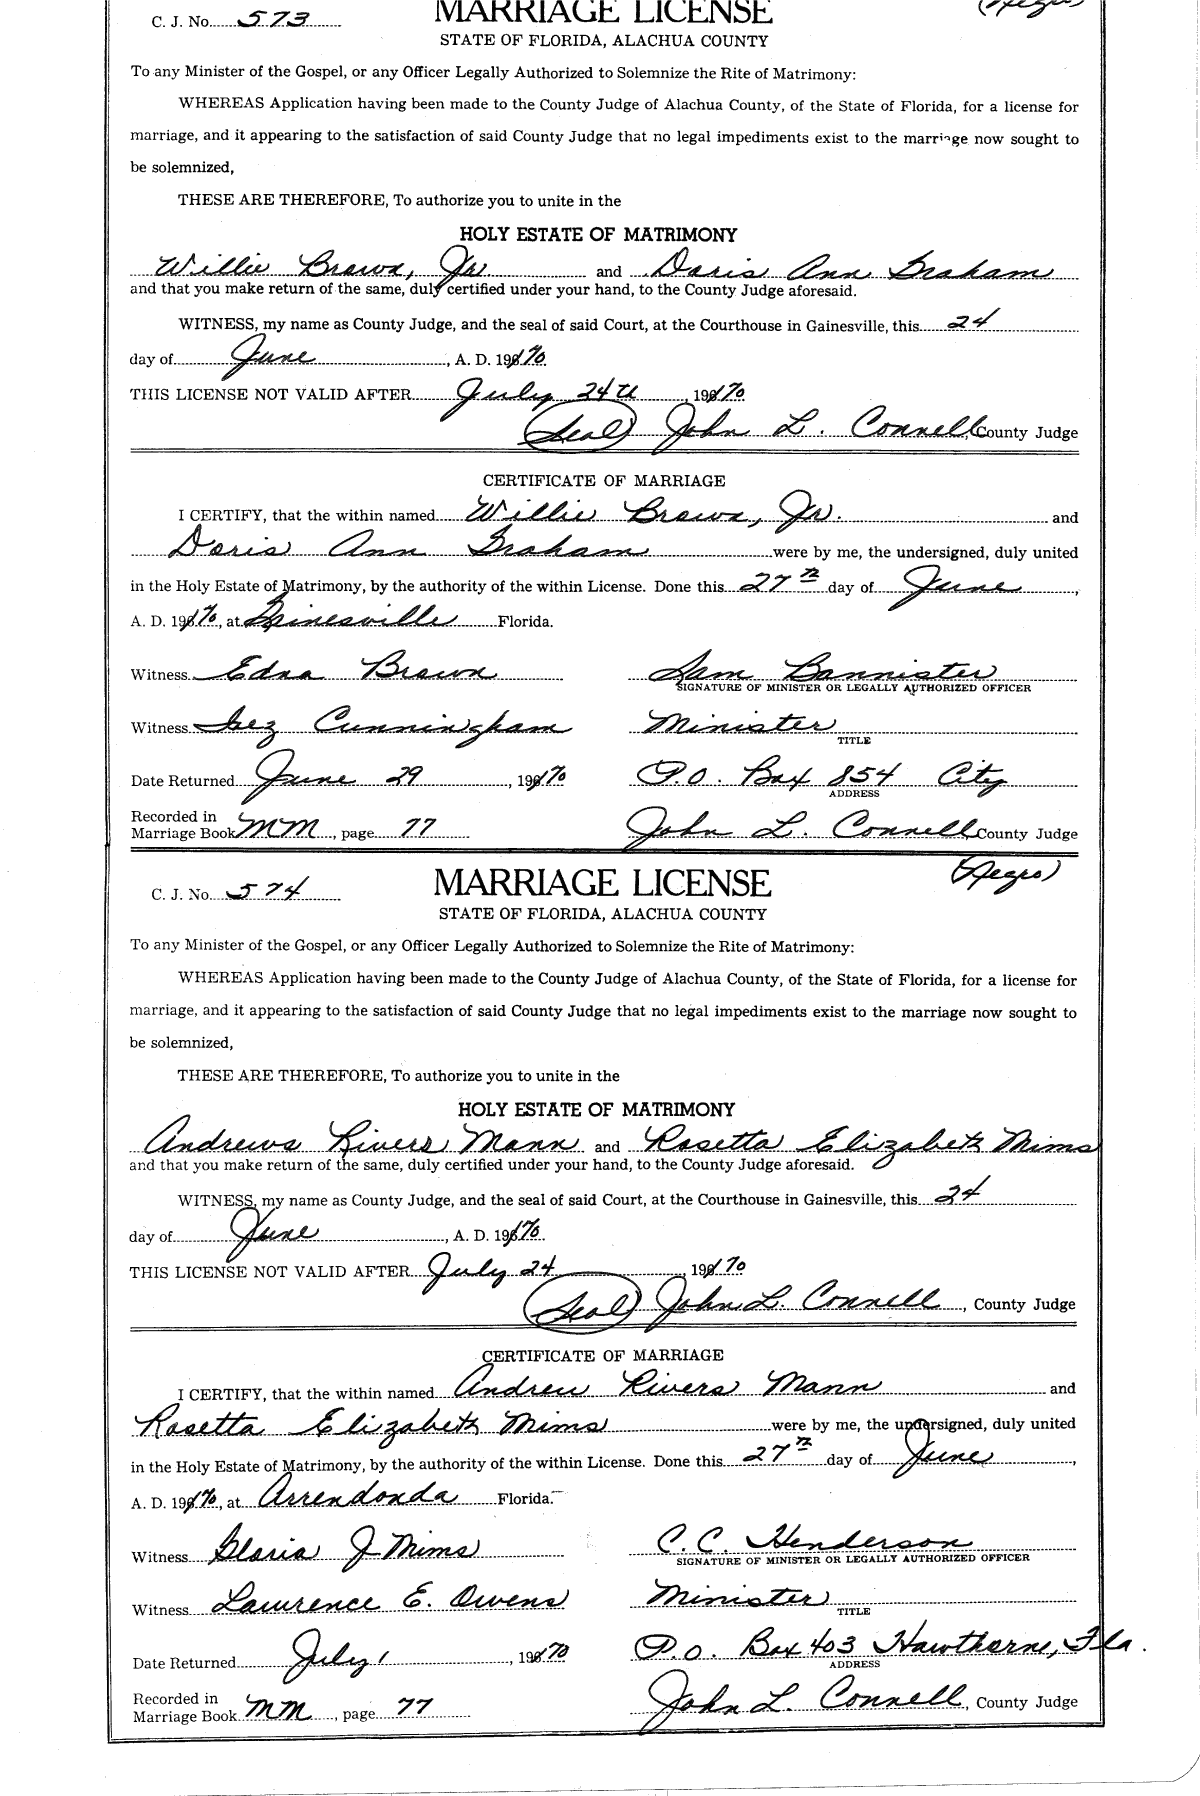 C. J. No. 573 MARRIAGE LICENSE (Negro)
STATE OF FLORIDA, ALACHUA COUNTY
To any Minister of the Gospel, or any Officer Legally Authorized to Solemnize the Rite of Matrimony:
WHEREAS Application having been made to the County Judge of Alachua County, of the State of Florida, for a license for
marriage, and it appearing to the satisfaction of said County Judge that no legal impediments exist to the marriage now sought to
be solemnized,
THESE ARE THEREFORE, To authorize you to unite in the
HOLY ESTATE OF MATRIMONY
Willie Brown, Jr and Doris Ann Graham
and that you make return of the same, duly certified under your hand, to the County Judge aforesaid.
WITNESS, my name as County Judge, and the seal of said Court, at the Courthouse in Gainesville, this 24
day of June, A. D. 1970
THIS LICENSE NOT VALID AFTER July 24th, 1970
(Seal) John L. Connell County Judge
CERTIFICATE OF MARRIAGE
I CERTIFY, that the within named Willie Brown, Jr. and
Doris Ann Graham were by me, the undersigned, duly united
in the Holy Estate of Matrimony, by the authority of the within License. Done this 27th day of June,
A. D. 1970, at Gainesville Florida.
Witness Edna Brown Sam Bannister
SIGNATURE OF MINISTER OR LEGALLY AUTHORIZED OFFICER
Witness Inez Cunningham Minister
TITLE
Date Returned June 29, 1970 P.O. Box 854 City
ADDRESS
Recorded in
Marriage Book MM, page 77 John L. Connell County Judge
C. J. No. 574 MARRIAGE LICENSE (Negro)
STATE OF FLORIDA, ALACHUA COUNTY
To any Minister of the Gospel, or any Officer Legally Authorized to Solemnize the Rite of Matrimony:
WHEREAS Application having been made to the County Judge of Alachua County, of the State of Florida, for a license for
marriage, and it appearing to the satisfaction of said County Judge that no legal impediments exist to the marriage now sought to
be solemnized,
THESE ARE THEREFORE, To authorize you to unite in the
HOLY ESTATE OF MATRIMONY
Andrews Rivers Mann and Rosetta Elizabeth Mims
and that you make return of the same, duly certified under your hand, to the County Judge aforesaid.
WITNESS, my name as County Judge, and the seal of said Court, at the Courthouse in Gainesville, this 24
day of June, A. D. 1970.
THIS LICENSE NOT VALID AFTER July 24, 1970
(Seal) John L. Connell, County Judge
CERTIFICATE OF MARRIAGE
I CERTIFY, that the within named Andrew Rivers Mann and
Rosetta Elizabeth Mims were by me, the undersigned, duly united
in the Holy Estate of Matrimony, by the authority of the within License. Done this 27th day of June,
A. D. 1970, at Arrendonda Florida.
Witness Gloria J Mims C. C. Henderson
SIGNATURE OF MINISTER OR LEGALLY AUTHORIZED OFFICER
Witness Lawrence E. Owens Minister
TITLE
Date Returned July 1, 1970 P.O. Box 403 Hawthorne, Fla.
ADDRESS
Recorded in
Marriage Book MM, page 77 John L. Connell, County Judge